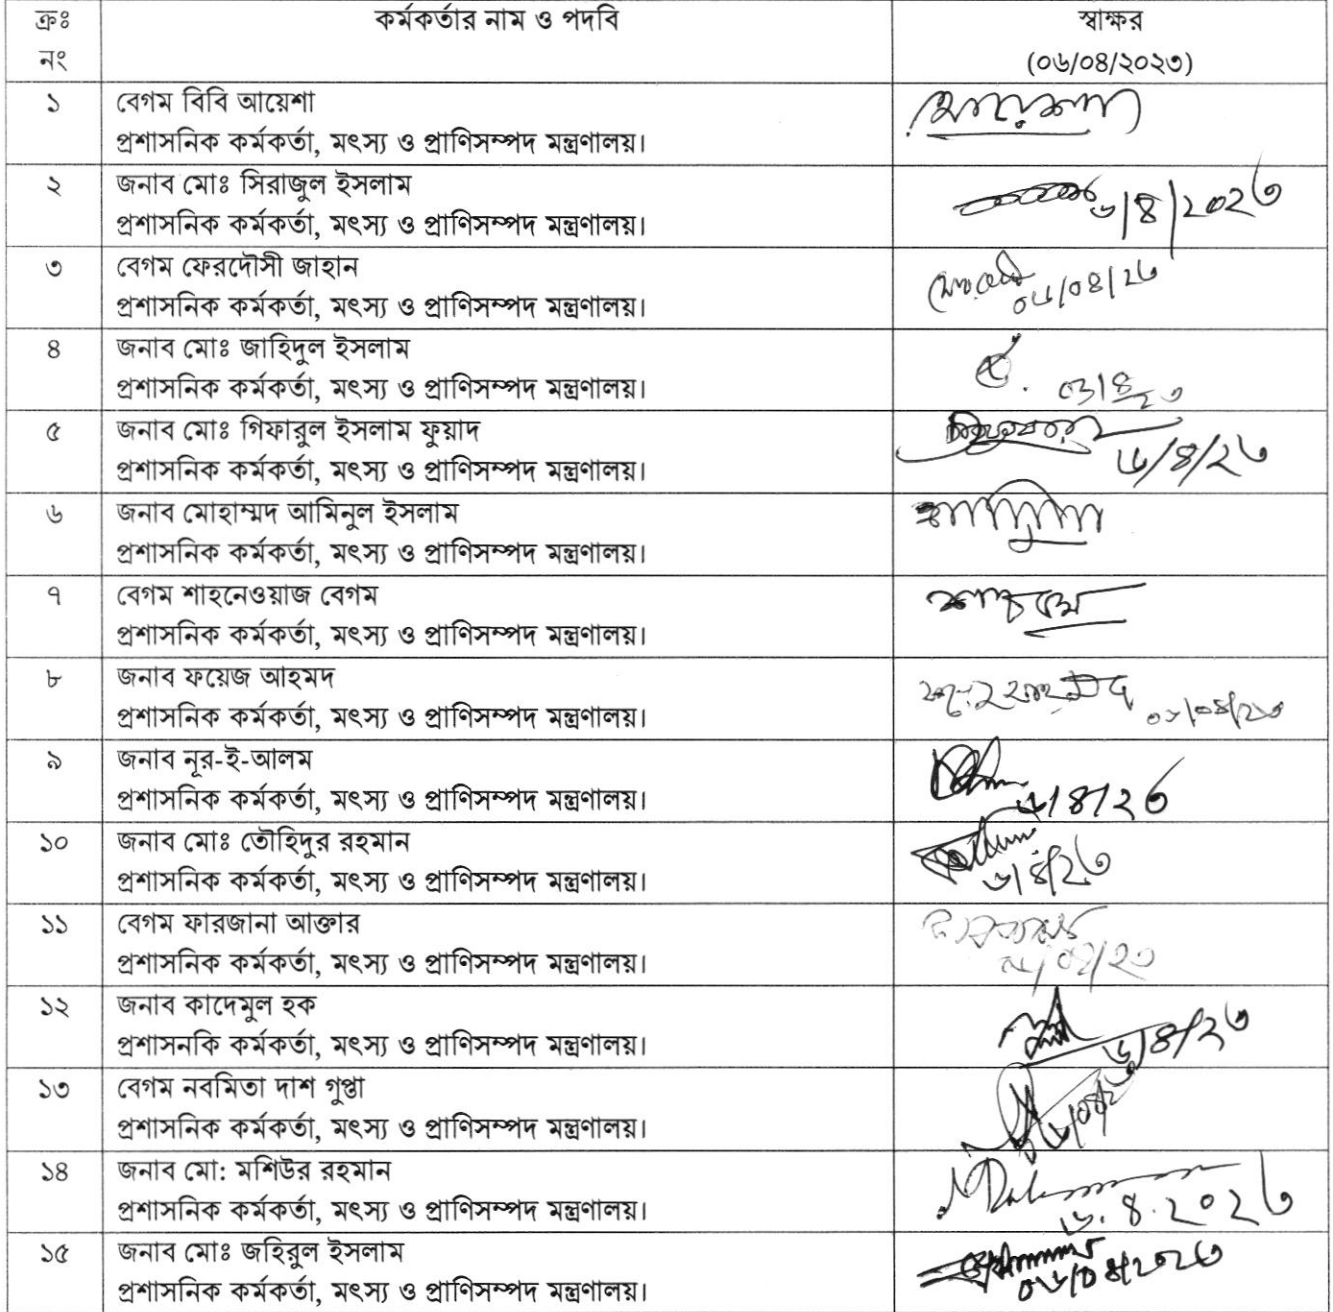 ক্রঃ নং কর্মকর্তার নাম ও পদবি স্বাক্ষর
(০৬/০৪/২০২৩)
১ বেগম বিবি আয়েশা
প্রশাসনিক কর্মকর্তা, মৎস্য ও প্রাণিসম্পদ মন্ত্রণালয়।
২ জনাব মোঃ সিরাজুল ইসলাম
৬/৪/২০২৩
প্রশাসনিক কর্মকর্তা, মৎস্য ও প্রাণিসম্পদ মন্ত্রণালয়।
৩ বেগম ফেরদৌসী জাহান
০৬/০৪/২৩
প্রশাসনিক কর্মকর্তা, মৎস্য ও প্রাণিসম্পদ মন্ত্রণালয়।
৪ জনাব মোঃ জাহিদুল ইসলাম
প্রশাসনিক কর্মকর্তা, মৎস্য ও প্রাণিসম্পদ মন্ত্রণালয়।
৫ জনাব মোঃ গিফারুল ইসলাম ফুয়াদ
৬/৪/২৩
প্রশাসনিক কর্মকর্তা, মৎস্য ও প্রাণিসম্পদ মন্ত্রণালয়।
৬ জনাব মোহাম্মদ আমিনুল ইসলাম
প্রশাসনিক কর্মকর্তা, মৎস্য ও প্রাণিসম্পদ মন্ত্রণালয়।
৭ বেগম শাহনেওয়াজ বেগম
প্রশাসনিক কর্মকর্তা, মৎস্য ও প্রাণিসম্পদ মন্ত্রণালয়।
৮ জনাব ফয়েজ আহমদ
প্রশাসনিক কর্মকর্তা, মৎস্য ও প্রাণিসম্পদ মন্ত্রণালয়।
৯ জনাব নূর-ই-আলম
৬/৪/২৩
প্রশাসনিক কর্মকর্তা, মৎস্য ও প্রাণিসম্পদ মন্ত্রণালয়।
১০ জনাব মোঃ তৌহিদুর রহমান
৬/৪/২৩
প্রশাসনিক কর্মকর্তা, মৎস্য ও প্রাণিসম্পদ মন্ত্রণালয়।
১১ বেগম ফারজানা আক্তার
প্রশাসনিক কর্মকর্তা, মৎস্য ও প্রাণিসম্পদ মন্ত্রণালয়।
১২ জনাব কাদেমুল হক
৬/৪/২৩
প্রশাসনকি কর্মকর্তা, মৎস্য ও প্রাণিসম্পদ মন্ত্রণালয়।
১৩ বেগম নবমিতা দাশ গুপ্তা
প্রশাসনিক কর্মকর্তা, মৎস্য ও প্রাণিসম্পদ মন্ত্রণালয়।
১৪ জনাব মো: মশিউর রহমান
৬.৪.২০২৩
প্রশাসনিক কর্মকর্তা, মৎস্য ও প্রাণিসম্পদ মন্ত্রণালয়।
১৫ জনাব মোঃ জহিরুল ইসলাম
০৬/০৪/২০২৩
প্রশাসনিক কর্মকর্তা, মৎস্য ও প্রাণিসম্পদ মন্ত্রণালয়।